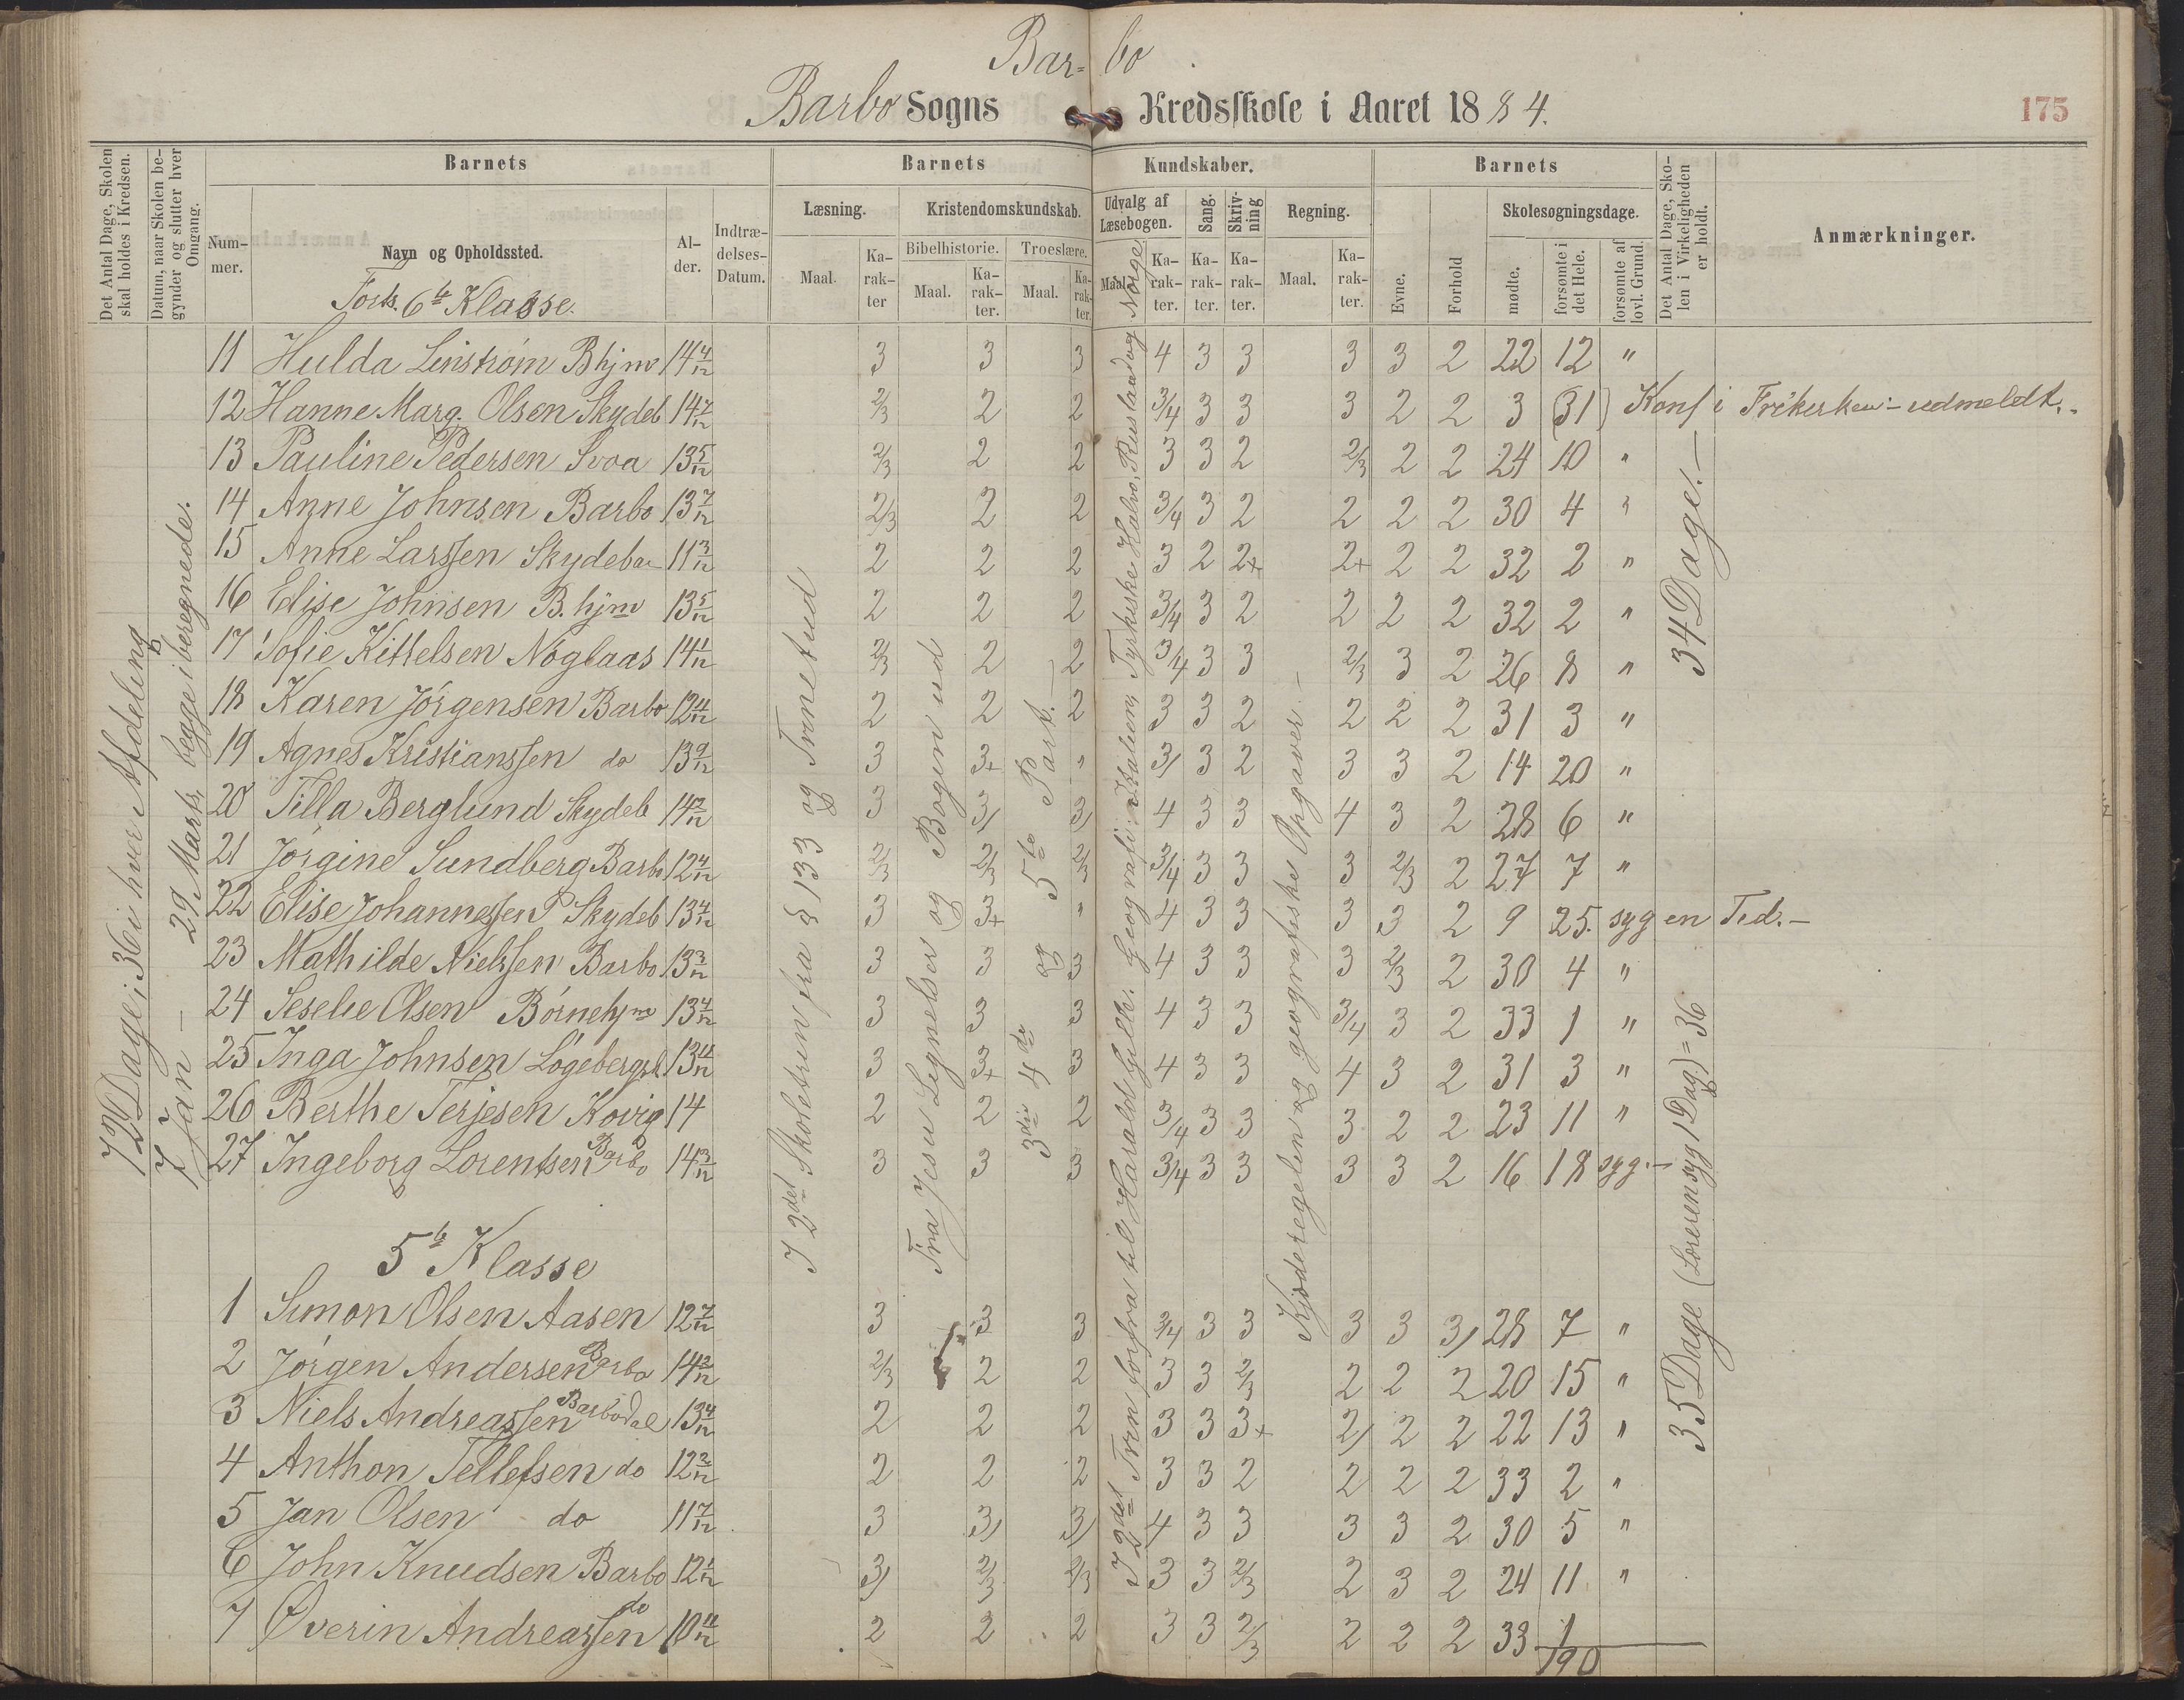 Bar= bo
Barbo Sogns Kredsskole i Aaret 1884. 175
Det Antal Dage, Skolen skal holdes i Kredsen.
Datum, naar Skolen begynder og slutter hver Omgang.
Barnets
Barnets Kundskaber.
Barnets
Det Antal Dage, Skolen i Virkeligheden er holdt.
Anmærkninger.
Nummer.
Navn og Opholdssted.
Alder.
Indtrædelses-Datum.
Læsning.
Kristendomskundskab.
Udvalg af Læsebogen.
Sang.
Skrivning
Regning.
Evne.
Forhold
Skolesøgningsdage.
Bibelhistorie.
Troeslære.
Maal. Karakter
Maal. Karakter.
Maal. Karakter.
Maal. Karakter.
Karakter.
Karakter.
Maal. Karakter.
mødte.
forsømte i det Hele.
forsømte af lovl. Grund.
Forts. 6te Klasse.
72 Dage; 36 i hver Afdeling
7 Jan – 29 Marts, begge iberegnede.
I 2det Skoletrin fra § 133 og Trinet ud
Fra Jesu Lignelser og Bogen ud
3die 4de og 5te Part.–
Kjæderegelen og geografiske Opgaver.–
34 Dage.–
35 Dage (Læreren syg 1 Dag) = 36
11 Hulda Linstrøm Bhjm 14 4/12 3 3 3 4 3 3 3 3 2 22 12 "
12 Hanne Marg. Olsen Skydeb 14 7/12 2/3 2 2 3/4 3 3 3 2 2 3 31) Konf i Frikirken – udmeldt.
13 Pauline Pedersen Svoa 13 5/12 2/3 2 2 3 3 2 2/3 2 2 24 10 "
14 Anne Johnsen Barbo 13 7/12 2/3 2 2 3/4 3 2 2 2 2 30 4 "
15 Anne Larssen Skydeba 11 3/12 2 2 2 3 2 2+ 2+ 2 2 32 2 "
16 Elise Johnsen B.hjm 13 5/12 2 2 2 3/4 3 2 2 2 2 32 2 "
17 Sofie Kittelsen Nøglaas 14 1/12 2/3 2 2 3/4 3 3 2/3 3 2 26 8 "
18 Karen Jørgensen Barbo 12 4/12 2 2 2 3 3 2 2 2 2 31 3 "
19 Agnes Kristianssen do 13 9/12 3 3+ " 3/ 3 2 3 3 2 14 20 "
20 Tilla Berglund Skydeb 14 2/12 3 3/ 3/ 4 3 3 4 3 2 28 6 "
21 Jørgine Sundberg Barbo 12 4/12 2/3 2/3 2/3 3/4 3 3 3 2/3 2 27 7 "
22 Elise Johannessen P Skydeb 13 4/12 3 3+ " 4 3 3 3 3 2 9 25. syg en Tid.–
23 Mathilde Nielssen Barbo 13 3/12 3 3 3 4 3 3 3 2/3 2 30 4 "
24 Seselie Olsen Børnehjm 13 4/12 3 3 3 4 3 3 3/4 3 2 33 1 "
25 Inga Johnsen Løgebergsk. 13 11/12 3 3+ 3 4 3 3 4 3 2 31 3 "
26 Berthe Terjesen Kovig 14 2 2 2 3/4 3 3 3 2 2 23 11 "
27 Ingeborg Lorentsen Barbo 14 3/12 3 3 3 3/4 3 3 3 3 2 16 18 syg.–
5te Klasse
1 Simon Olsen Aasen 12 7/12 3 3 3 3/4 3 3 3 3 3/ 28 7 "
2 Jørgen Andersen Barbo 14 2/12 2/3 2 2 3 3 2/3 2 2 2 20 15 "
3 Niels Andreassen Barbodal 13 4/12 2 2 2 3 3 3+ 2/ 2 2 22 13 "
4 Anthon Tellefsen do 12 3/12 2 2 2 3 3 2 2 2 2 33 2 "
5 Jan Olsen do 11 7/12 3 3/ 3/ 4 3 3 3 3 2 30 5 "
6 John Knudsen Barbo 12 1/12 3/ 2/3 2/3 3 3 2/3 2 3 2 24 11 "
7 Øverin Andreassen do 10 11/12 2 2 2 3 3 2/3 2 2 2 33 1
190